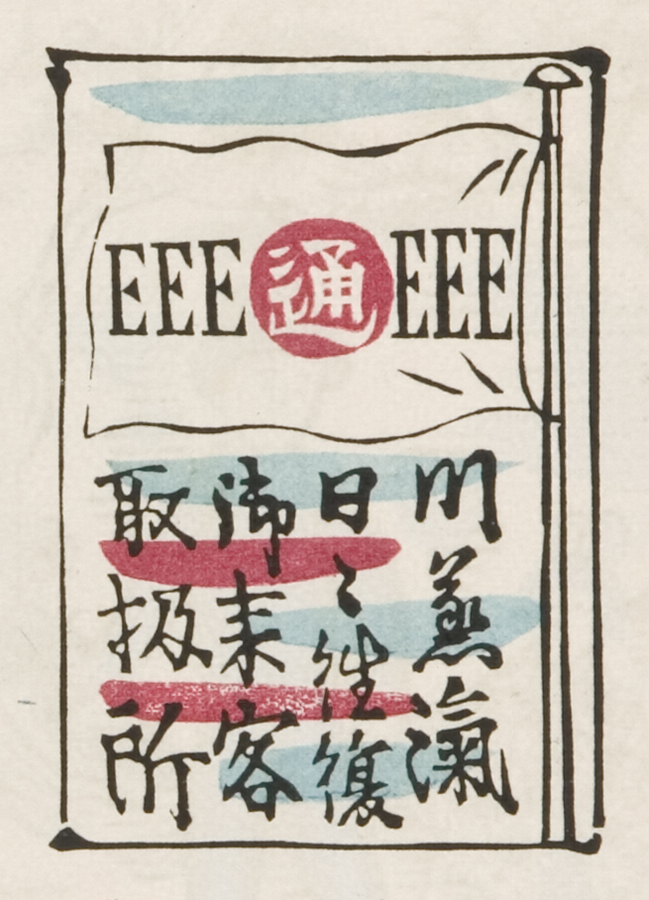 EEE通EEE
川蒸滊
日〻往復
御来客
取扱所